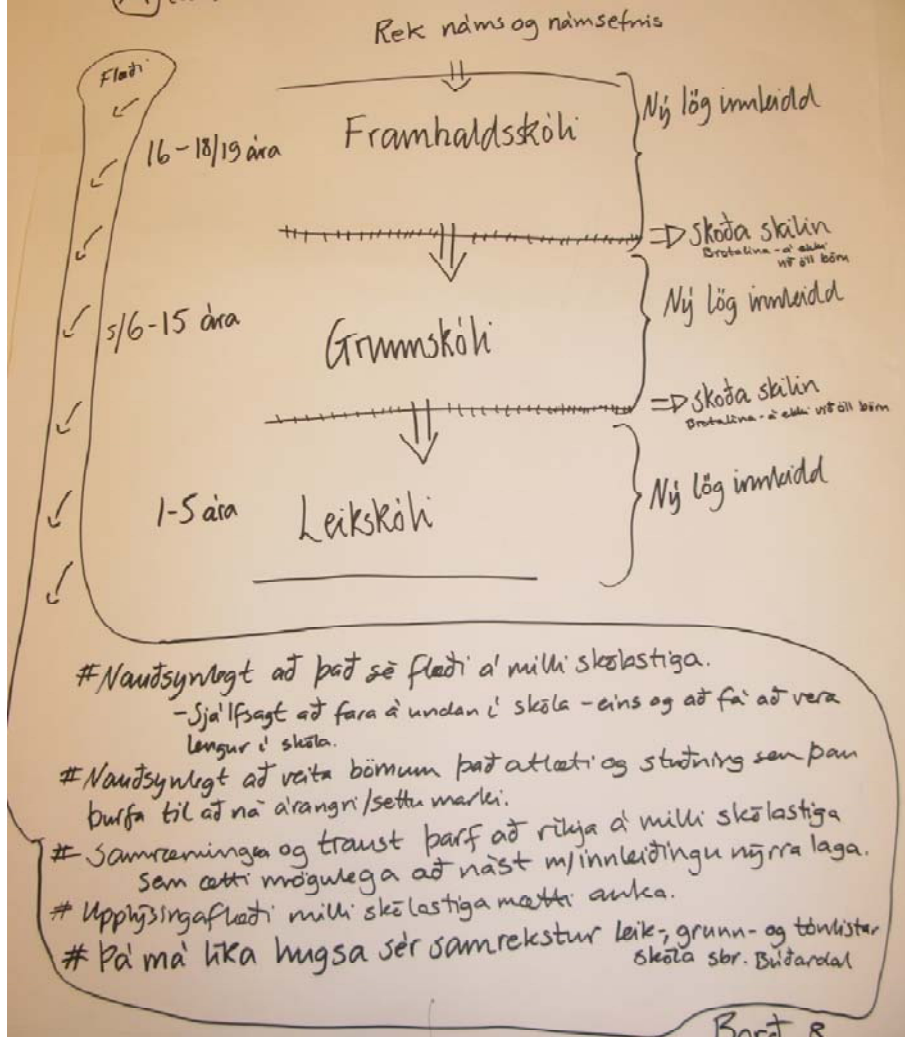 Rek náms og námsefnis
Flæði
16-18/19 ára
Framhaldsskóli
Ný lög innleidd
=> skoða skilin
Brotalína - á ekki
við öll börn
5/6-15 ára
Grunnskóli
Ný lög innleidd
=> skoða skilin
Brotalína - á ekki við öll börn
1-5 ára
Leikskóli
Ný lög innleidd
# Nauðsynlegt að það sé flæði á milli skólastiga.
- Sjálfsagt að fara á undan í skóla - eins og að fá að vera
lengur í skóla.
# Nauðsynlegt að veita börnum það atlæti og stuðning sem þau
þurfa til að ná árangri/settu marki.
# Samræming og traust þarf að ríkja á milli skólastiga
sem ætti mögulega að nást m/innleiðingu nýrra laga.
# Upplýsingaflæði milli skólastiga mætti auka.
# Þá má líka hugsa sér samrekstur leik-, grunn- og tónlistar
skóla sbr. Búðardal
Borð 8